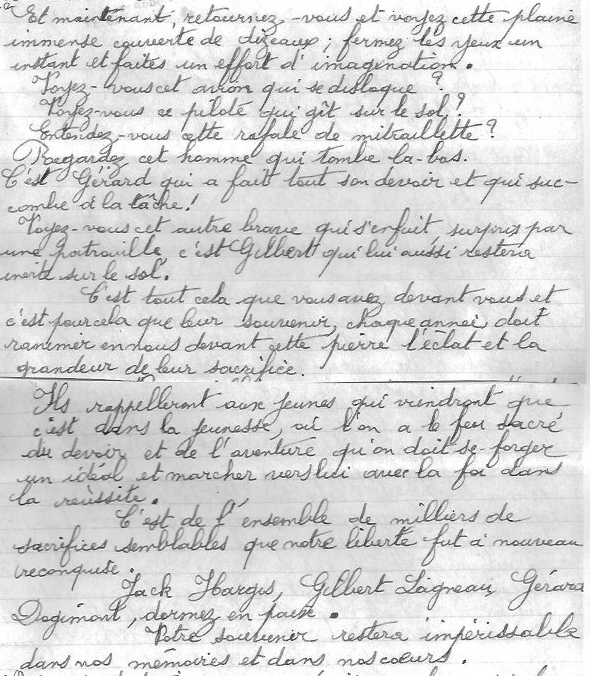 Et maintenant, retournez-vous et voyez cette plaine
immense couverte de dizeaux; fermez les yeux un
instant et faites un effort d'imagination.
Voyez-vous cet avion qui se disloque ?
Voyez-vous ce pilote qui gît sur le sol ?
Entendez-vous cette rafale de mitraillette ?
Regardez cet homme qui tombe la-bas.
C'est Gérard qui a fait tout son devoir et qui suc-
combe à la tâche!
Voyez-vous cet autre brave qui s'enfuit surpris par
une patrouille, c'est Gilbert qui lui aussi restera
inerte sur le sol.
C'est tout cela que vous avez devant vous et
c'est pour cela que leur souvenir, chaque année, doit
ranimer en nous devant cette pierre l'éclat et la
grandeur de leur sacrifice.
Ils rappelleront aux jeunes qui viendront que
c'est dans la jeunesse, où l'on a le feu sacré
du devoir et de l'aventure qu'on doit se forger
un idéal et marcher vers lui avec la foi dans
la réussite.
C'est de l'ensemble de milliers de
sacrifices semblables que notre liberté fut à nouveau
reconquise.
Jack Hargis, Gilbert Lagneau, Gérard
Dogimont, dormez en paix.
Votre souvenir restera impérissable
dans nos mémoires et dans nos coeurs.